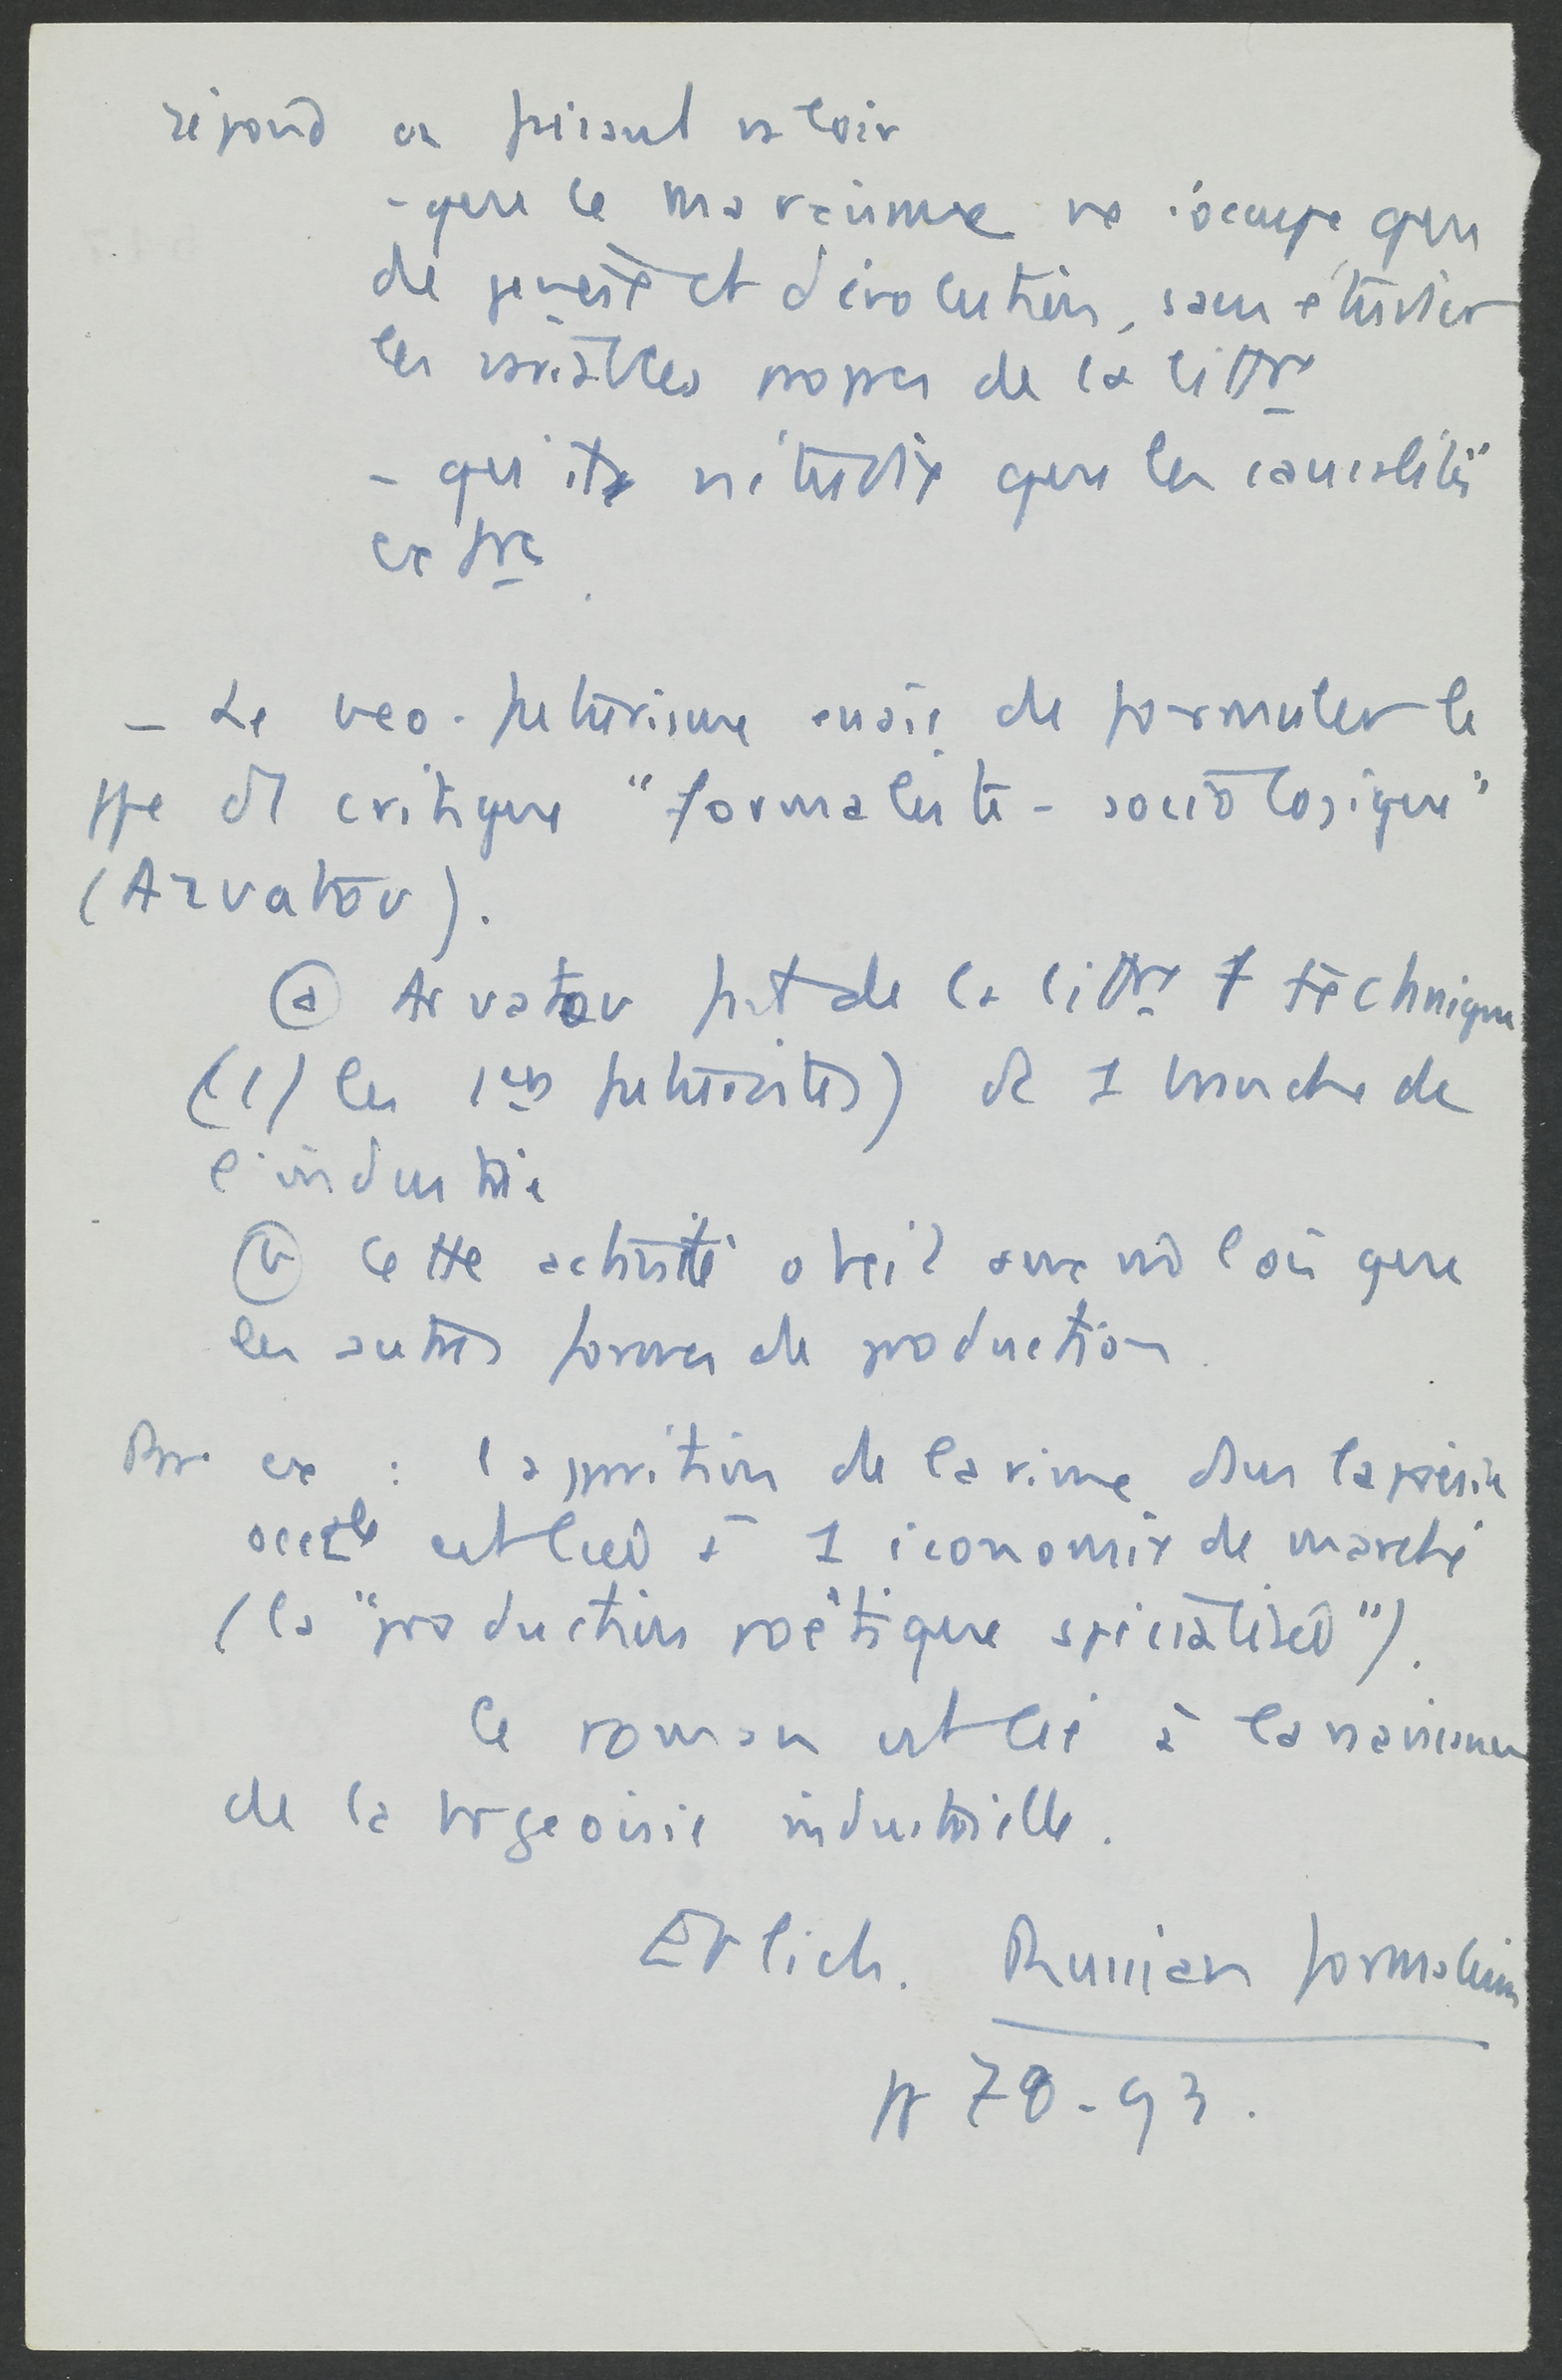 répond en faisant valoir
- que le marxisme ne s'occupe que
de genèse et d'évolution, sans étudier
les variables propres de la litt<sup>re</sup>
- qu'il n'étudie que les causalités
ext<sup>re</sup>.
- Le neo-futurisme essaie de formuler le
ppe d' critique "formaliste-sociologique"
(Arvatov).
(a) Arvatov fait de la litt<sup>re</sup> 1 technique
(cf les 1ers futuristes) et 1 branche de
l'industrie
(b) Cette activité obéit aux m̂ lois que
les autres formes de production.
Par ex : l'apparition de la rime dans la poésie
occ<sup>ale</sup> est liée à 1 économie de marché
(la "production poétique spécialisée").
le roman est lié à la naissance
de la bgeoisie industrielle.
Erlich. Russian formalism
pp 78-93.